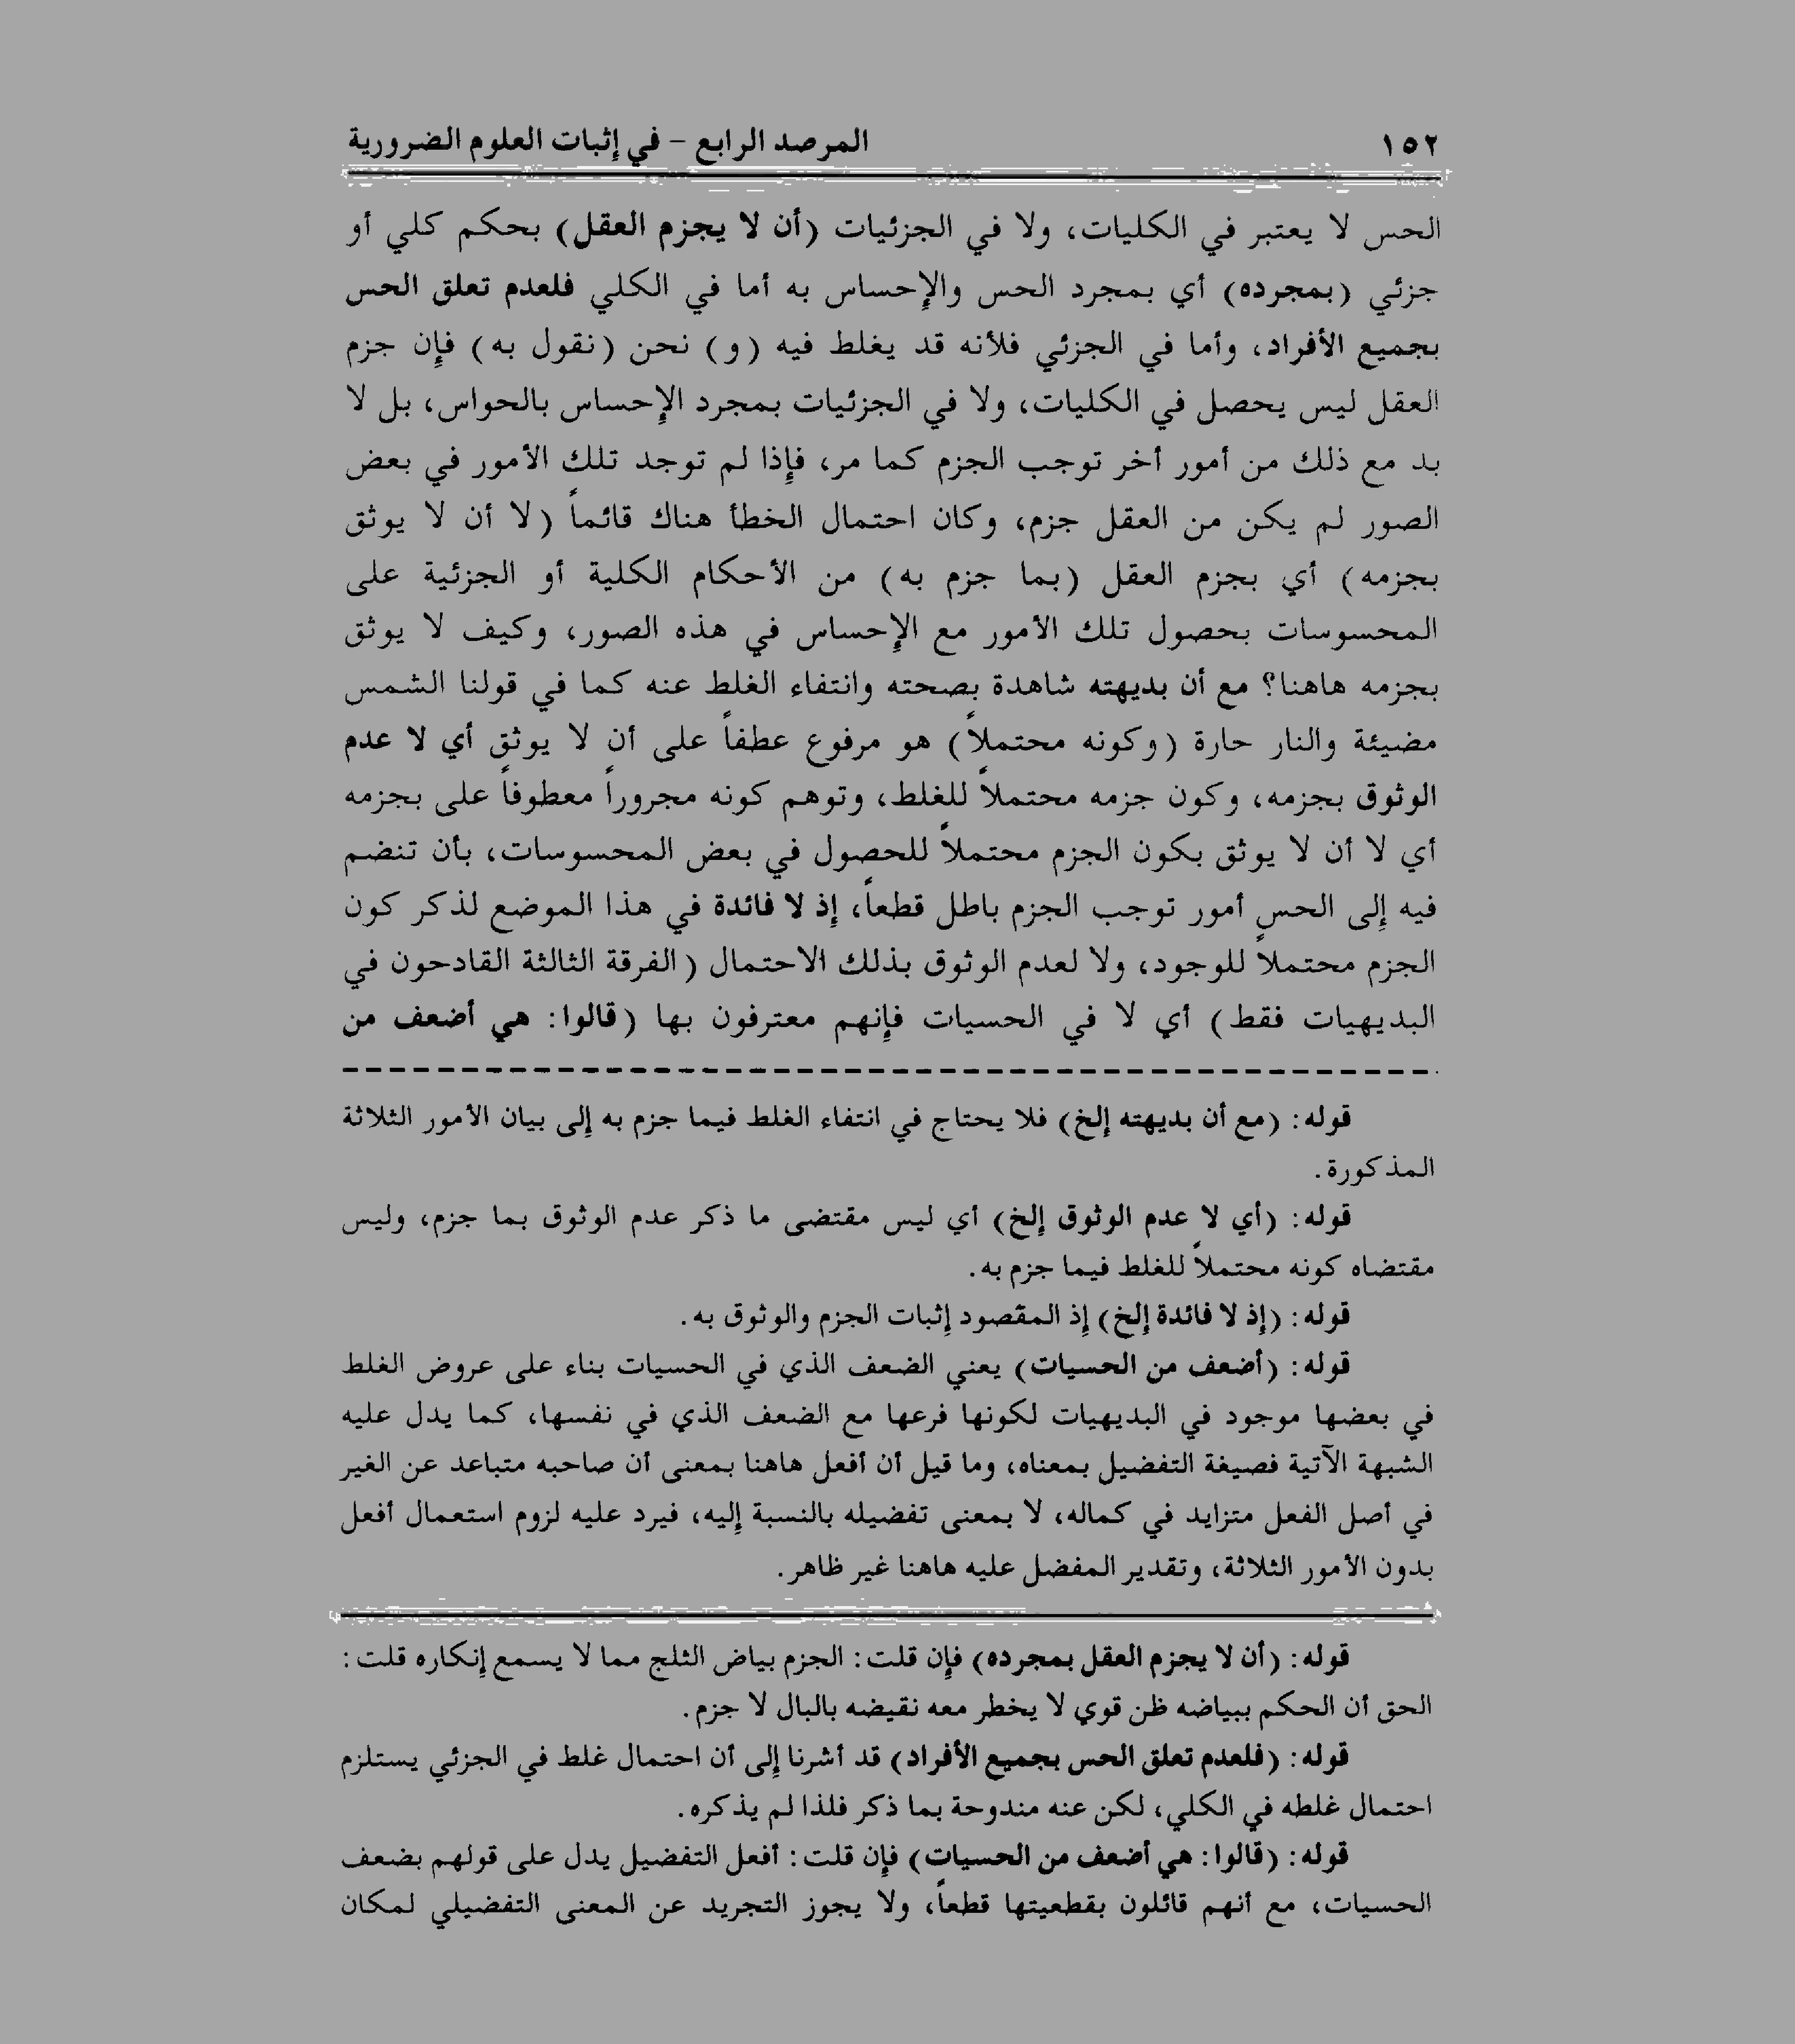 ١٥٢
المرصد الرابع - في إثبات العلوم الضرورية
الحس لا يعتبر في الكليات، ولا في الجزئيات (أن لا يجزم العقل) بحكم كلي أو
جزئي (بمجرده) أي بمجرد الحس والإحساس به أما في الكلي فلعدم تعلق الحس
بجميع الأفراد، وأما في الجزئي فلأنه قد يغلط فيه (و) نحن (نقول به) فإن جزم
العقل ليس يحصل في الكليات، ولا في الجزئيات بمجرد الإحساس بالحواس، بل لا
بد مع ذلك من أمور أخر توجب الجزم كما مر، فإذا لم توجد تلك الأمور في بعض
الصور لم يكن من العقل جزم، وكان احتمال الخطأ هناك قائماً (لا أن لا يوثق
بجزمه) أي بجزم العقل (بما جزم به) من الأحكام الكلية أو الجزئية على
المحسوسات بحصول تلك الأمور مع الإحساس في هذه الصور، وكيف لا يوثق
بجزمه هاهنا؟ مع أن بديهته شاهدة بصحته وانتفاء الغلط عنه كما في قولنا الشمس
مضيئة والنار حارة (وكونه محتملاً) هو مرفوع عطفاً على أن لا يوثق أي لا عدم
الوثوق بجزمه، وكون جزمه محتملاً للغلط، وتوهم كونه مجروراً معطوفاً على بجزمه
أي لا أن لا يوثق بكون الجزم محتملاً للحصول في بعض المحسوسات، بأن تنضم
فيه إلى الحس أمور توجب الجزم باطل قطعاً، إذ لا فائدة في هذا الموضع لذكر كون
الجزم محتملاً للوجود، ولا لعدم الوثوق بذلك الاحتمال (الفرقة الثالثة القادحون في
البديهيات فقط) أي لا في الحسيات فإنهم معترفون بها (قالوا: هي أضعف من
قوله: (مع أن بديهته إلخ) فلا يحتاج في انتفاء الغلط فيما جزم به إلى بيان الأمور الثلاثة
المذكورة.
قوله: (أي لا عدم الوثوق إلخ) أي ليس مقتضى ما ذكر عدم الوثوق بما جزم، وليس
مقتضاه كونه محتملاً للغلط فيما جزم به.
قوله: (إذ لا فائدة إلخ) إذ المقصود إثبات الجزم والوثوق به.
قوله: (أضعف من الحسيات) يعني الضعف الذي في الحسيات بناء على عروض الغلط
في بعضها موجود في البديهيات لكونها فرعها مع الضعف الذي في نفسها، كما يدل عليه
الشبهة الآتية فصيغة التفضيل بمعناه، وما قيل أن أفعل هاهنا بمعنى أن صاحبه متباعد عن الغير
في أصل الفعل متزايد في كماله، لا بمعنى تفضيله بالنسبة إليه، فيرد عليه لزوم استعمال أفعل
بدون الأمور الثلاثة، وتقدير المفضل عليه هاهنا غير ظاهر.
قوله: (أن لا يجزم العقل بمجرده) فإن قلت: الجزم بياض الثلج مما لا يسمع إنكاره قلت:
الحق أن الحكم ببياضه ظن قوي لا يخطر معه نقيضه بالبال لا جزم.
قوله: (فلعدم تعلق الحس بجميع الأفراد) قد أشرنا إلى أن احتمال غلط في الجزئي يستلزم
احتمال غلطه في الكلي، لكن عنه مندوحة بما ذكر فلذا لم يذكره.
قوله: (قالوا: هي أضعف من الحسيات) فإن قلت: أفعل التفضيل يدل على قولهم بضعف
الحسيات، مع أنهم قائلون بقطعيتها قطعاً، ولا يجوز التجريد عن المعنى التفضيلي لمكان